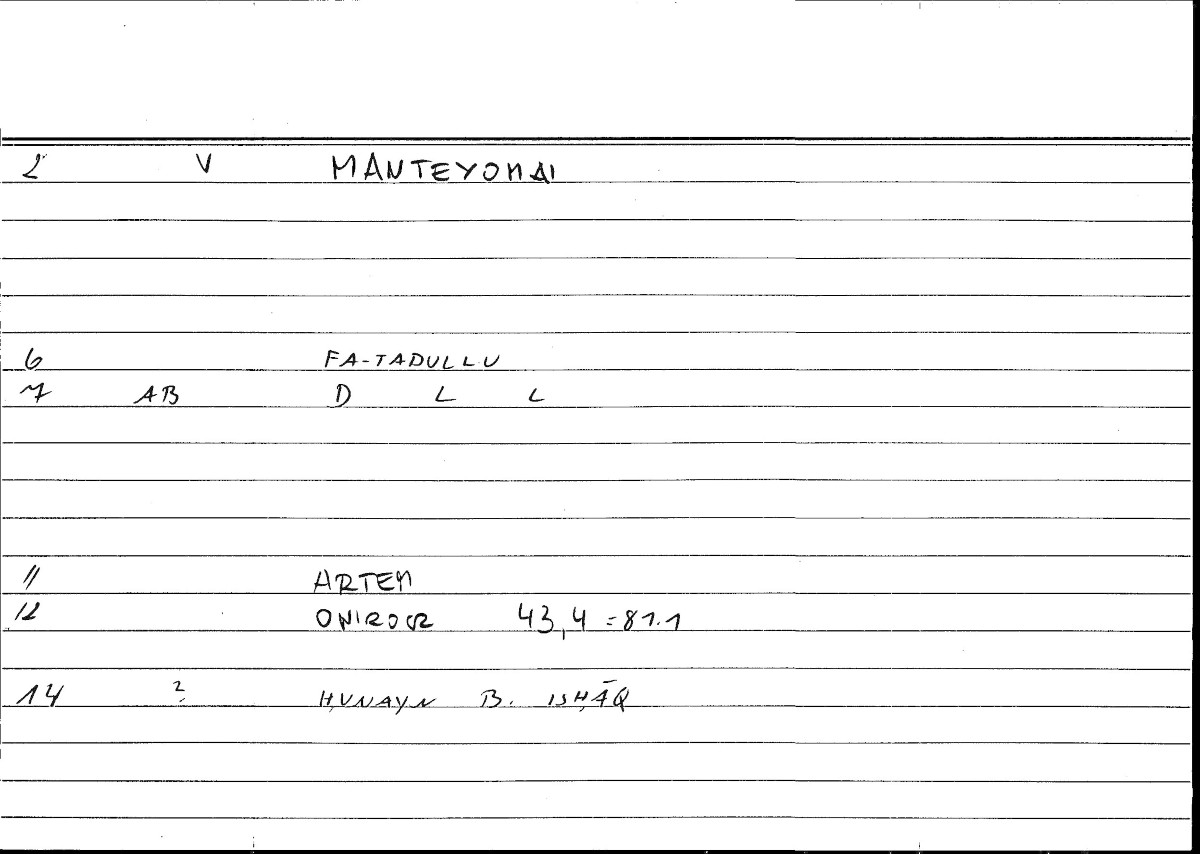 2 V MANTEYOMAI
6 FA-TADULLU
7 AB D L L
11 ARTEM
12 ONIROCR 43,4 = 81.1
14 ? ḤUNAYN B. ISḤĀQ